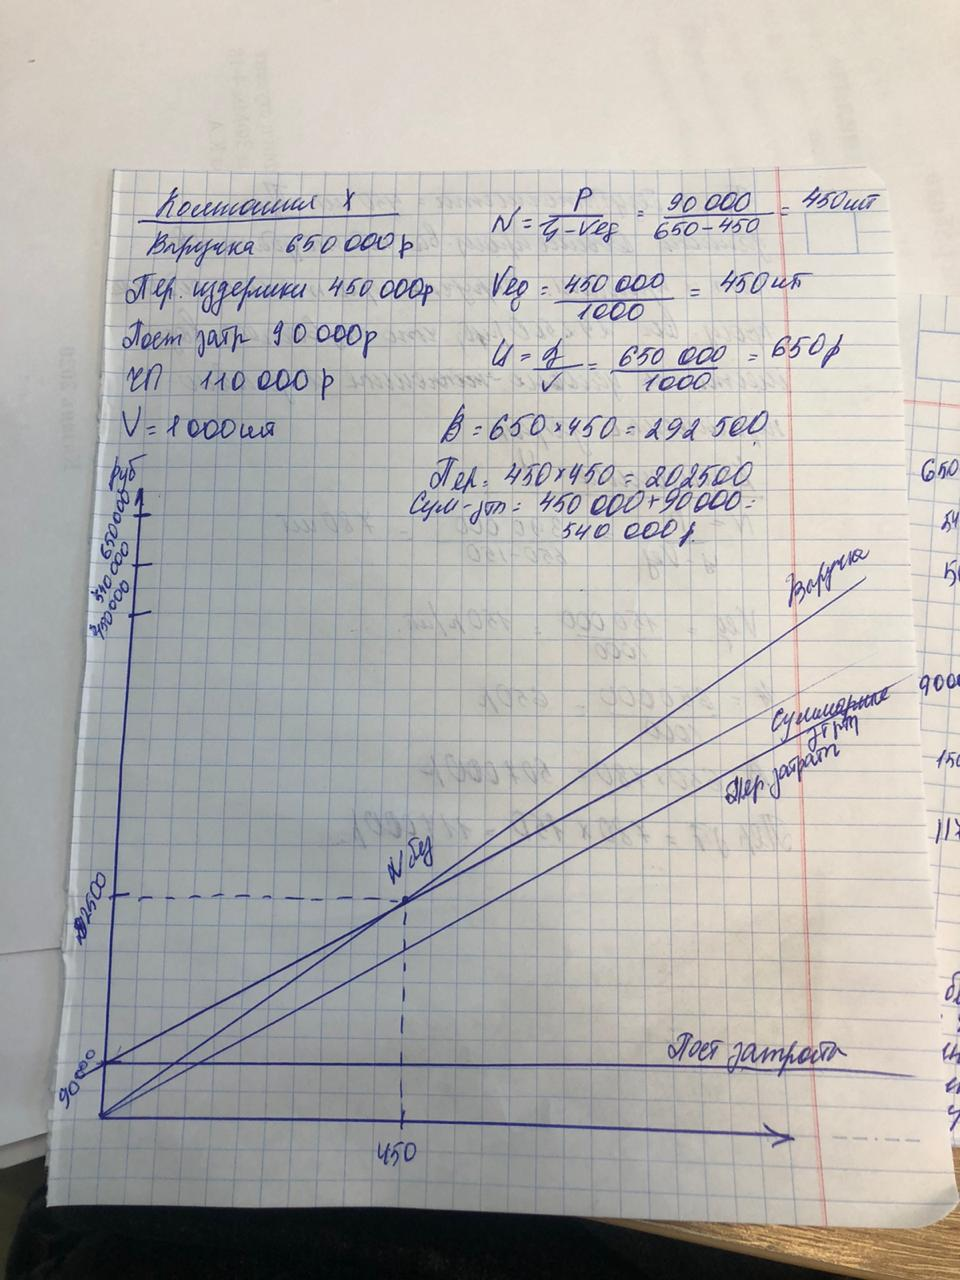 Компания X
Выручка 650 000р
Пер. издержки 450 000р
Пост затр 90 000р
ЧП 110 000р
V = 1 000шт
N = P / Ц - Vед = 90 000 / 650 - 450 = 450шт
Vед = 450 000 / 1000 = 450шт
Ц = / V = 650 000 / 1000 = 650р
В = 650 × 450 = 292 500
Пер. 450 × 450 = 202500
Сум-зтр = 450 000 + 90000 =
540 000р
Руб
650000
540 000
450000
Выручка
Суммарные
Пер. затраты
N бу
2500
90 000
Пост затраты
450
650
54
9000
150
117